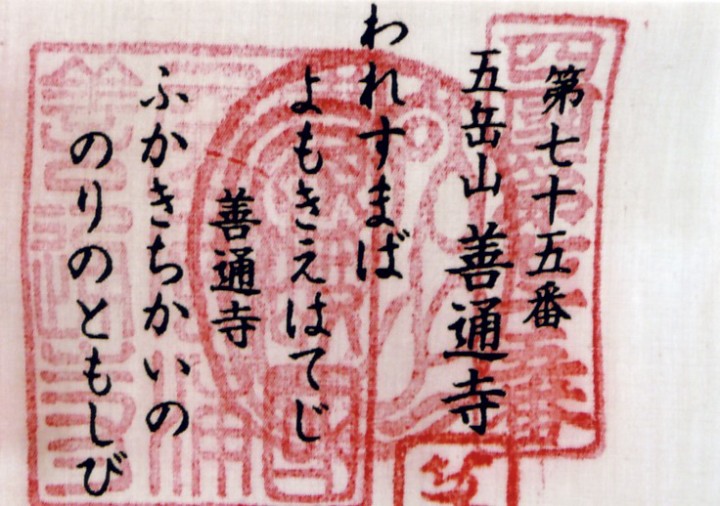 第七十五番
五岳山 善通寺
われすまば
よもきえはてじ
善通寺
ふかきちかいの
のりのともしび
四國第七十五番
善通寺